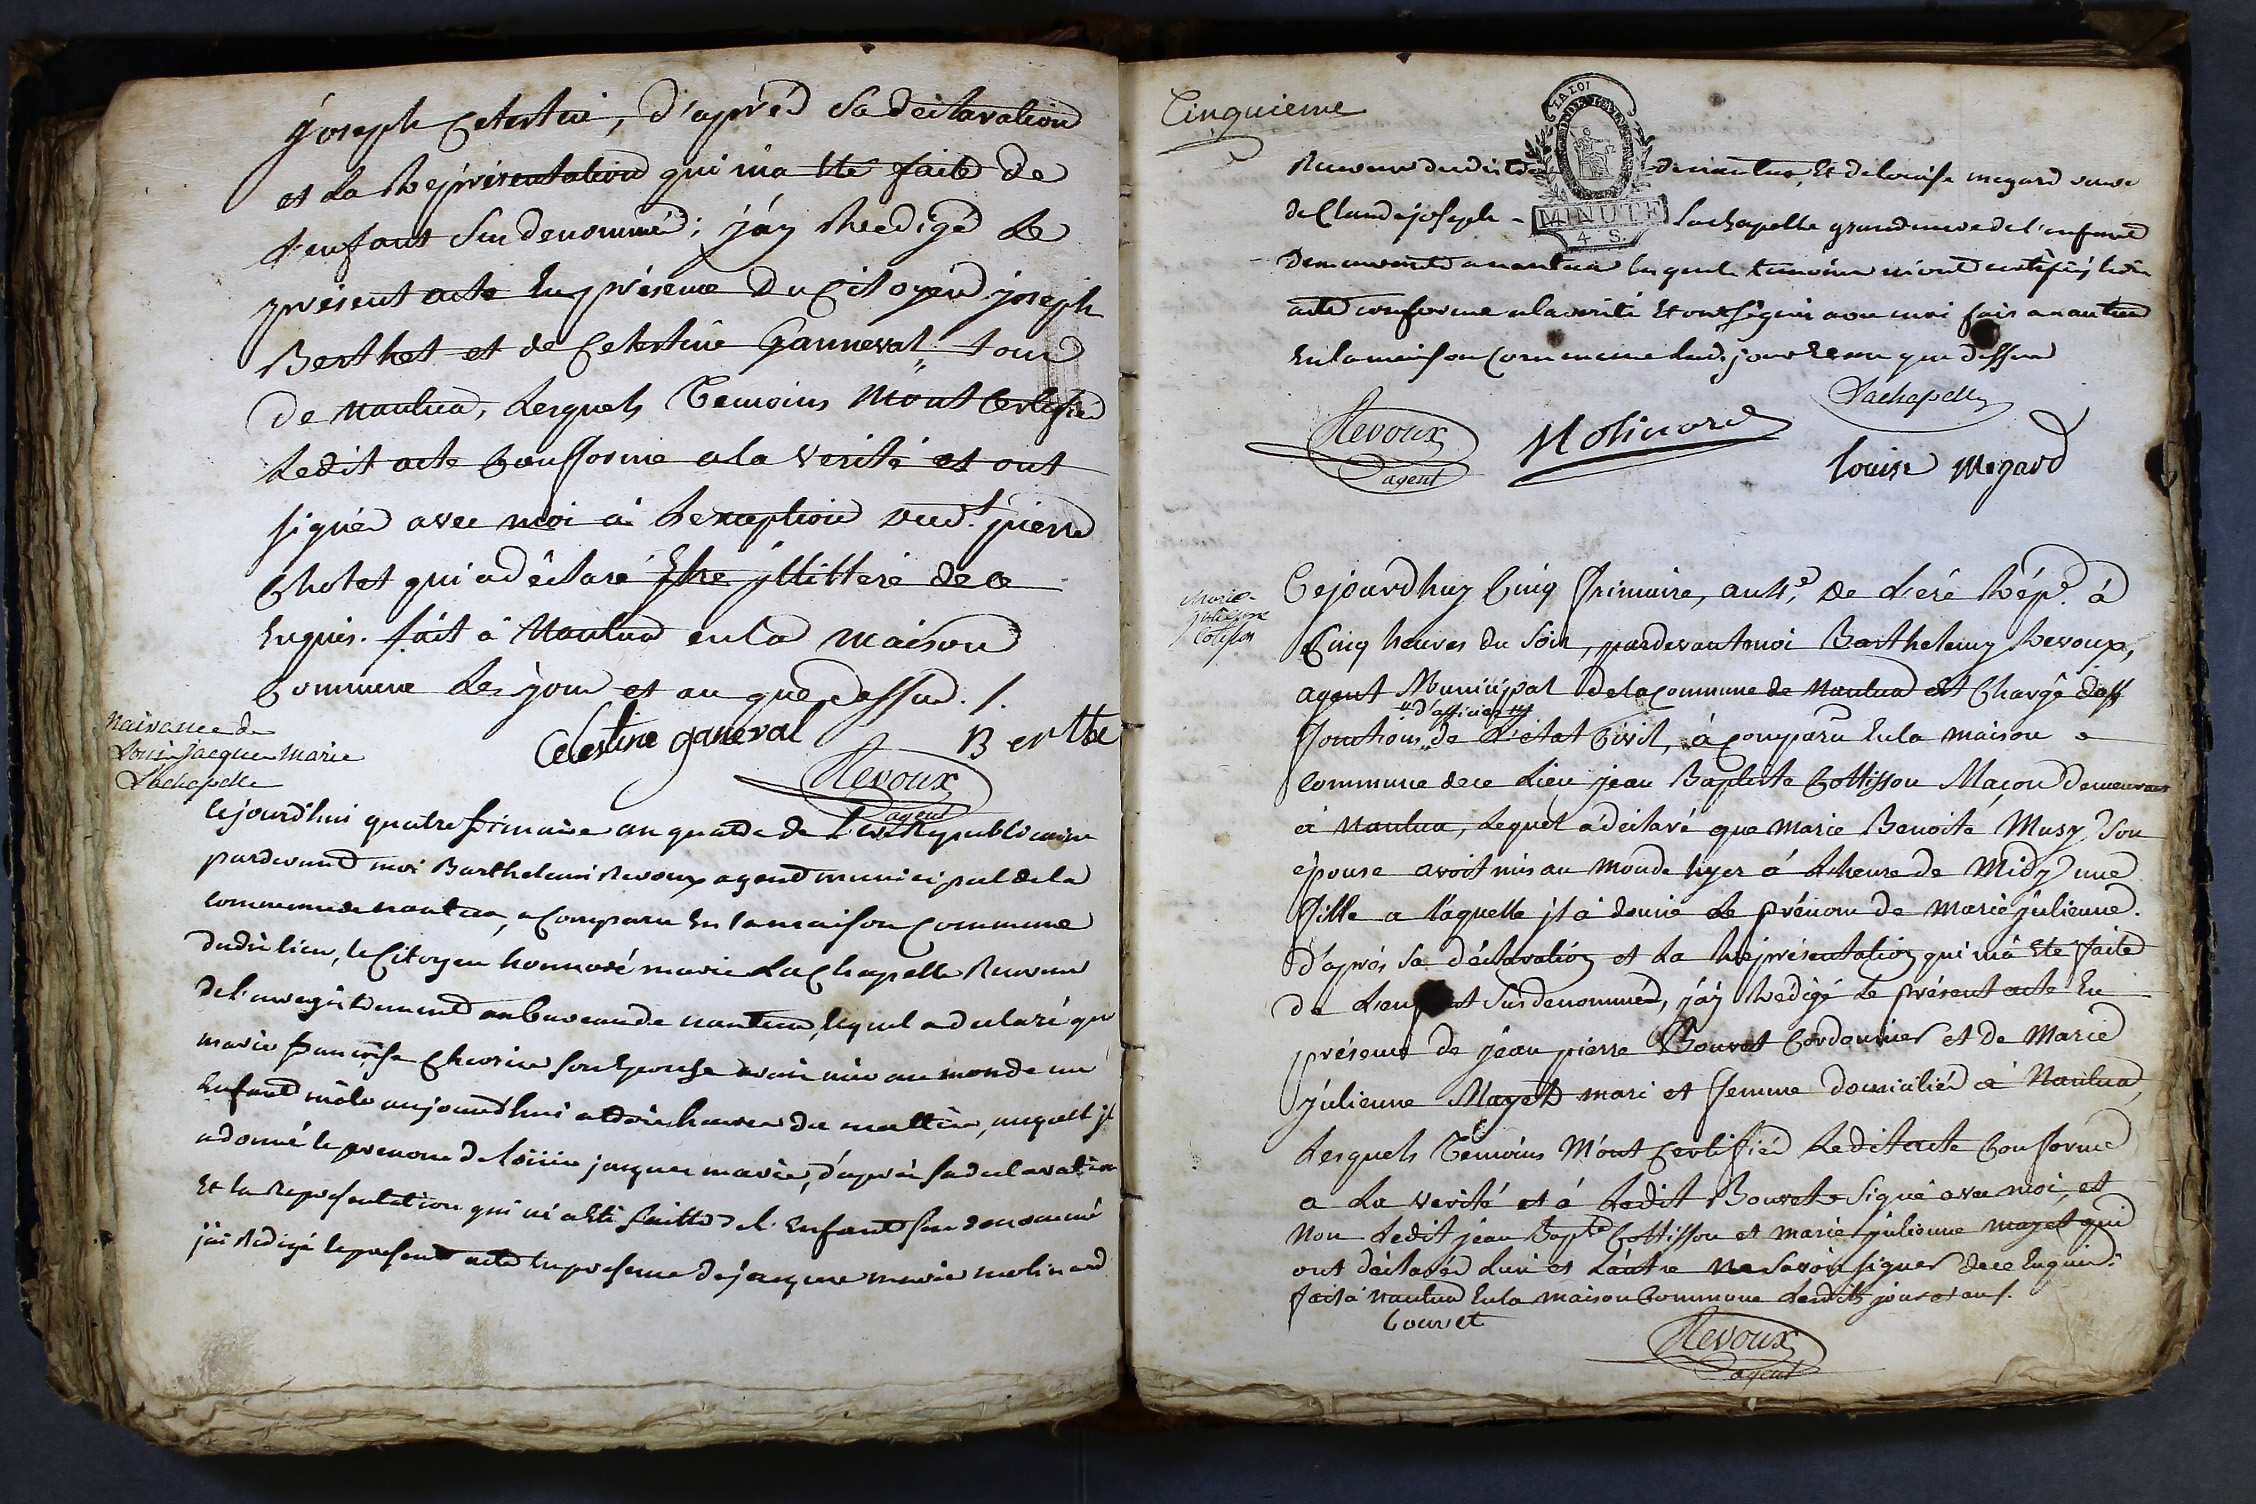 joseph Celestin, d'après sa déclaration
et la Représentation qui m'a Eté faite de
l'enfant Sus denommé; j'ay Redigé Le
présent acte En présence Du Citoyen joseph
Berthet et de Celestine Ganneval, tous
de nantua, Lesquels Temoins M'ont Certifié
Ledit acte Conforme a la Verité et ont
signés avec moi à Lexception dud.t pierre
Chotet qui a déclaré Etre jllittéré de ce
Enquis. fait à Nantua en la maison
Commune Les jour et an que dessus ./.
Celestine ganeval Berthe
Revoux
agent
Naissance de
Louis Jacques Marie
Lachapelle
Cejourd'hui quatre frimaire an quatre de l'ere Republicaine
pardevant moi Barthelemi Revoux agent municipal de la
commune de nantua, a Comparu En la maison Commune
dudit lieu, le Citoyen honnoré marie La Chapelle Receveur
de l'enregistrement au bureau de nantua, lequel a declaré que
marie françoise son Epouse avoit mis au monde un
Enfant mâle aujourd'hui a trois heures du mattin, auquel jl
a donné le prenom de loüis jacques marie, d'après sa declaration
Et la Representation qui m'a Eté faitte de l'Enfant sus denommé
j'ai Redigé le present acte En presence de jacques marie molinard
Cinquieme
MINUTE
4 S.
Receveur dudit de nantua, Et de louise megard veuve
de Claude joseph - Lachapelle grand mere de l'enfant
Demeurante a nantua lesquels temoins m'ont certifiés
acte conforme a la verité Et ont signés avec moi fait a nantua
En la maison Commune Lesd. jour Et an que dessus
Lachapelle
Revoux
agent
Molinard
louise Megard
Marie
julienne
Cotisson
Cejourd'huy Cinq frimaire, an 4.e, de L'eré Rép.e à
Cinq heures du Soir, pardevant moi Barthelemy Revoux,
agent Municipal de la commune de Nantua et Chargé des
d'officier
fonctions de L'etat Civil, à comparu En la maison
Commune de ce Lieu jean Baptiste Cottisson Maçon Demeurant
à Nantua, Lequel a déclaré que Marie Benoite Musy Son
épouse avoit mis au monde hyer à L'heure de Midy une
fille a laquelle jl a donné Le prénom de marie julienne.
D'après sa déclaration et La Représentation qui m'a Eté faite
de L'enfant Sus denommé, j'ay Redigé Le présent acte En
présence de jean pierre Bouvet Cordonnier et de Marie
julienne Mayet mari et femme domiciliés à Nantua,
Lesquels Témoins M'ont Certifiés Ledit acte Conforme
a La verité et à Ledit Bouvet Signé avec moi, et
non Ledit jean Bapt.e Cottisson et marie julienne mayet qui
ont déclarés L'un et L'autre Ne Savoir signer de ce Enquis.
fait à nantua En la maison Commune Lesdits jour et an /.
bouvet
Revoux
agent